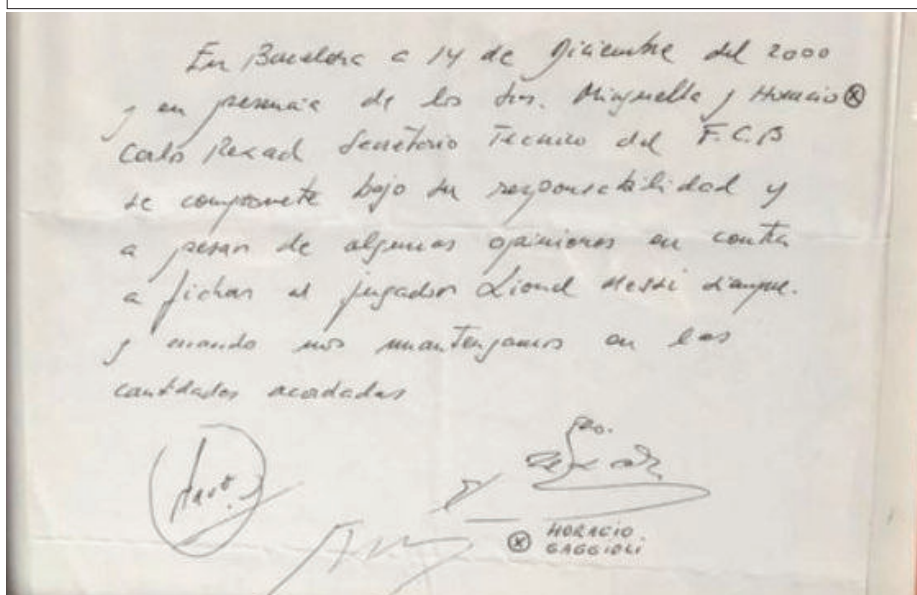 En Barcelona a 14 de Diciembre del 2000
y en presencia de los Srs. Minguella y Horacio ⓧ
Carlos Rexach Secretario Tecnico del F.C.B
se compromete bajo su responsabilidad y
a pesar de algunas opiniones en contra
a fichar al jugador Lionel Messi siempre
y cuando nos mantengamos en las
cantidades acordadas
ⓧ HORACIO
GAGGIOLI